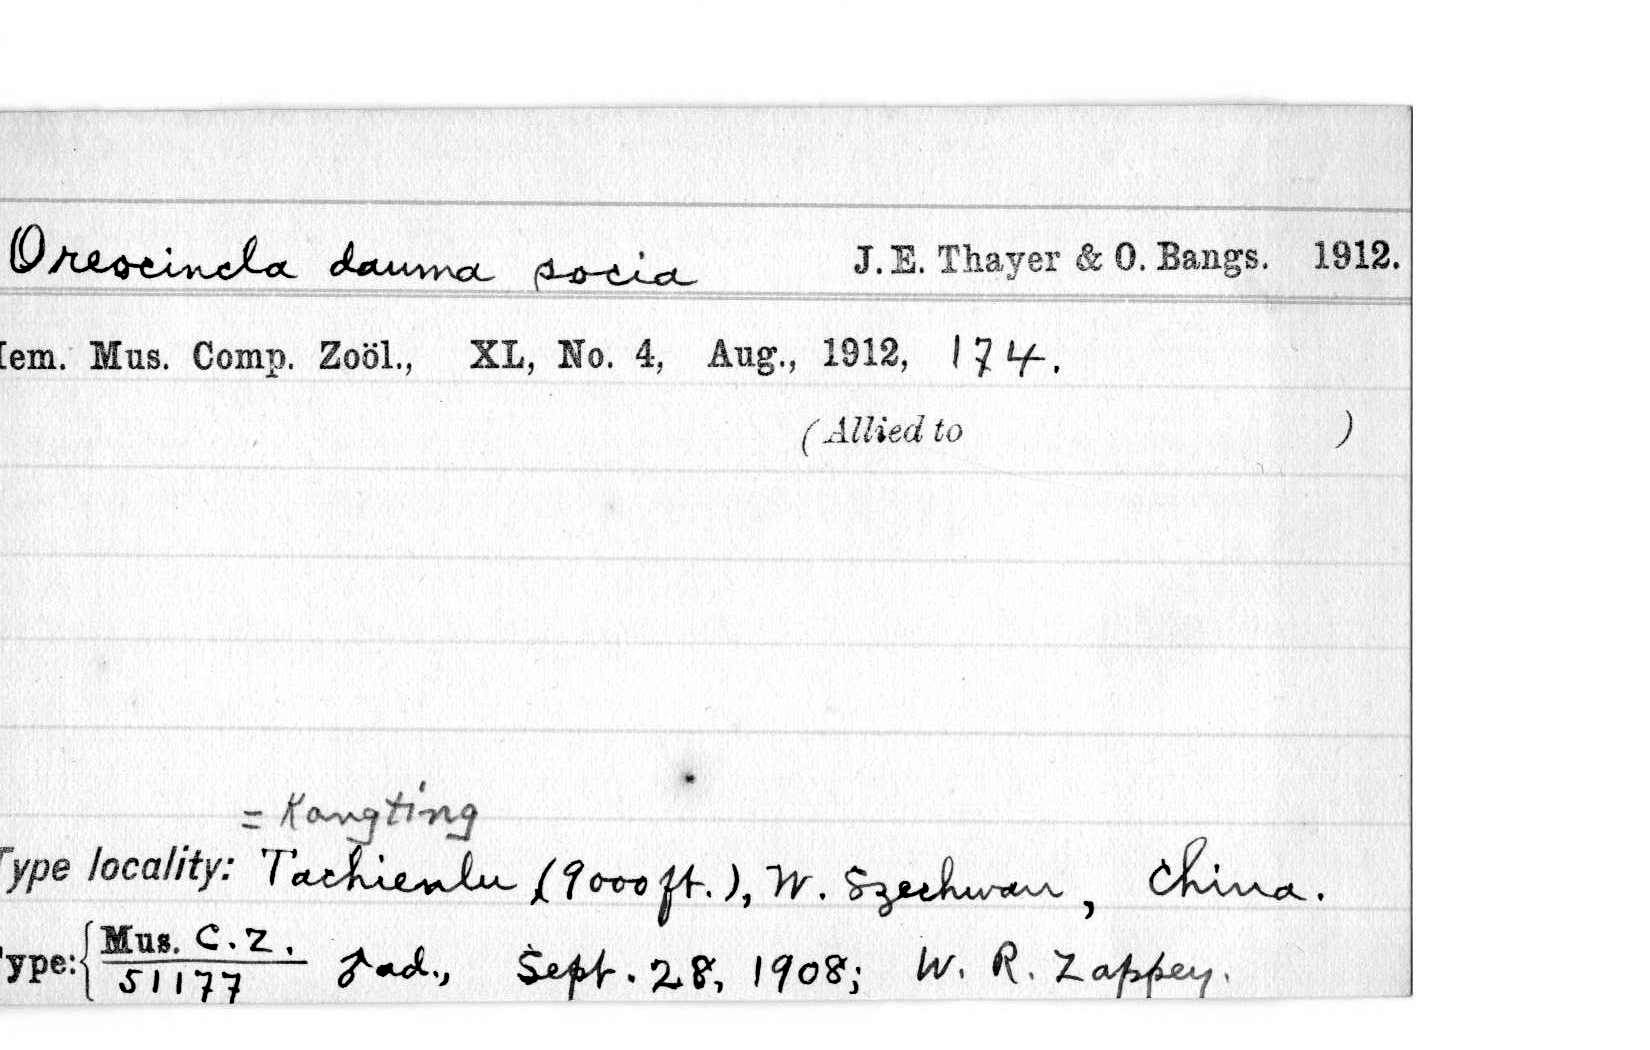 Oreocincla dauma socia J. E. Thayer & O. Bangs. 1912.
Mem. Mus. Comp. Zoöl., XL, No. 4, Aug., 1912, 174.
(Allied to )
= Kangting
Type locality: Tachienlu (9000 ft.), W. Szechwan, China.
Type: { Mus. C. Z. 51177 ♂ ad., Sept. 28, 1908; W. R. Zappey.